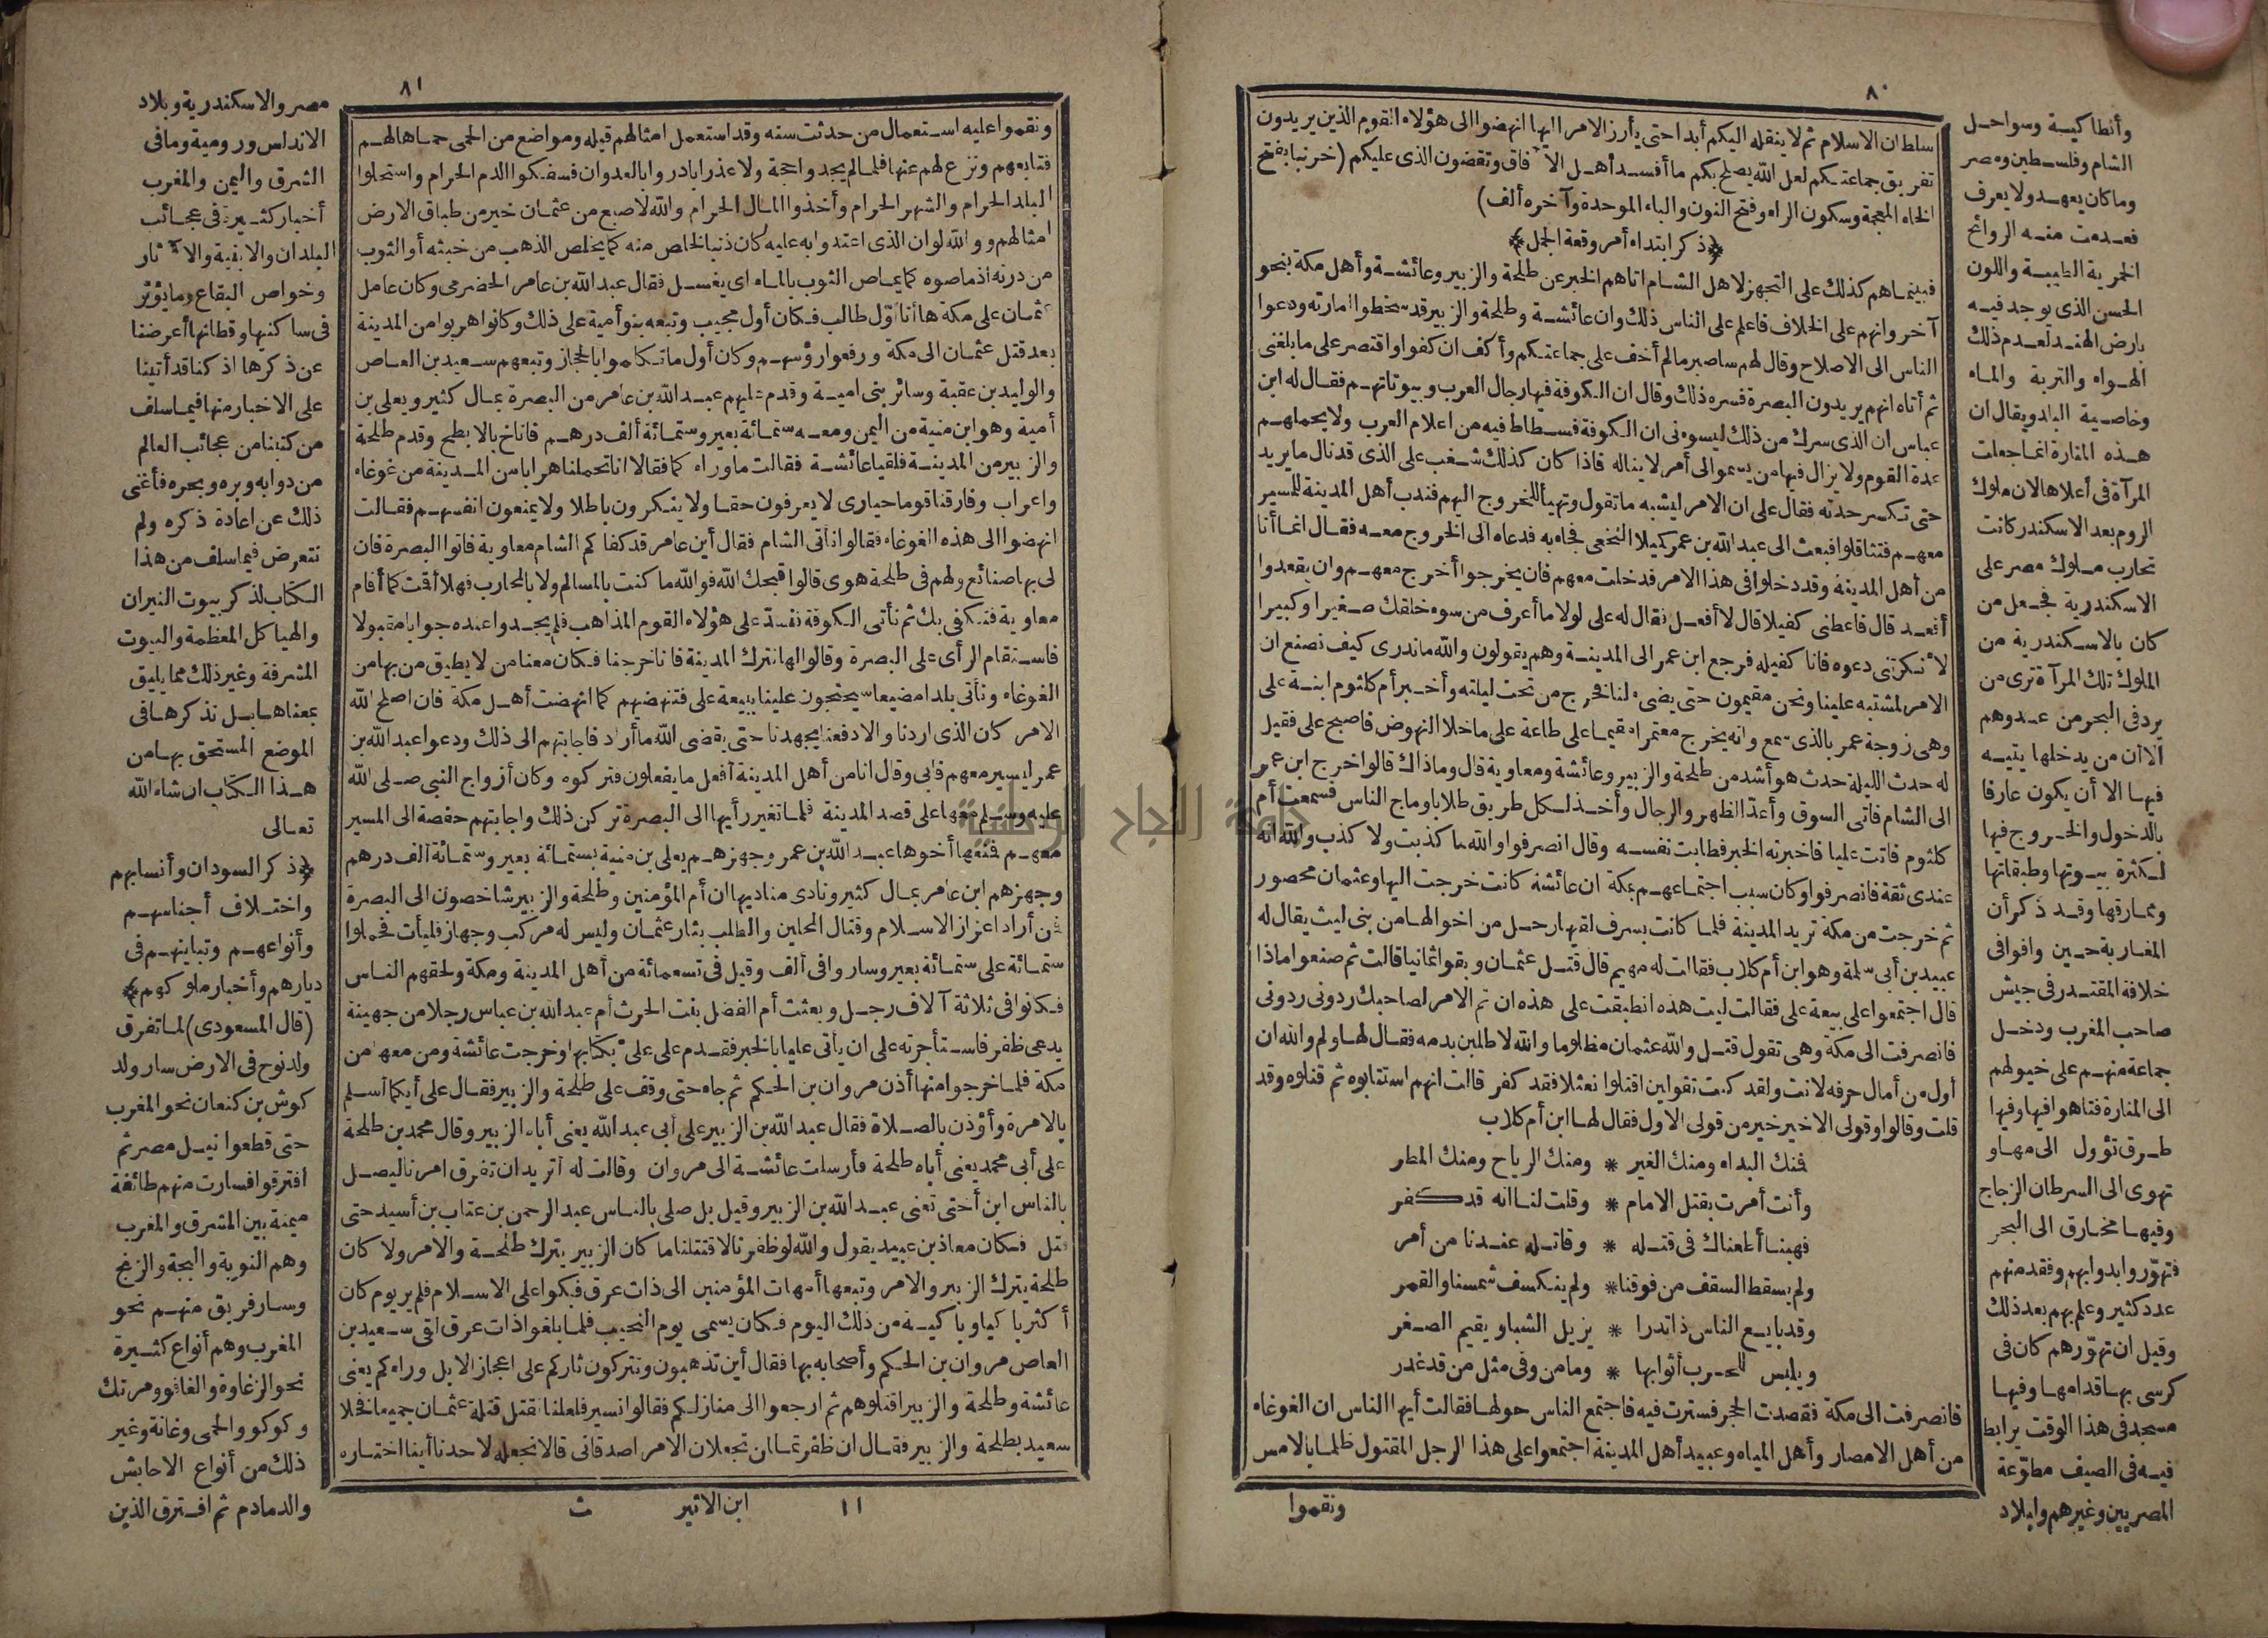 ٨٠
سلطان الاسلام ثم لا ينقله اليكم أبدا حتى يأرز الامر اليها انهضوا الى هؤلاء القوم الذين يريدون
تفريق جماعتكم لعل الله يصلح بكم ما أفسد أهل الآفاق وتقضون الذى عليكم (خرنبا بفتح
الخاء المعجمة وسكون الراء وفتح النون والباء الموحدة وآخره ألف)
﴿ذكر ابتداء أمر وقعة الجمل﴾
فبينما هم كذلك على التجهز لاهل الشام اتاهم الخبر عن طلحة والزبير وعائشة وأهل مكة بنحو
آخر وانهم على الخلاف فاعلم على الناس ذلك وان عائشة وطلحة والزبير قد سخطوا امارته ودعوا
الناس الى الاصلاح وقال لهم ساصبر ما لم أخف على جماعتكم وأكف ان كفوا واقتصر على ما بلغنى
ثم أتاه انهم يريدون البصرة فسره ذلك وقال ان الكوفة فيها رجال العرب وبيوتاتهم فقال له ابن
عباس ان الذى سرك من ذلك ليسوءنى ان الكوفة فسطاط فيه من اعلام العرب ولا يحملهم
عدة القوم ولا يزال فيها من يسمو الى أمر لا يناله فاذا كان كذلك شغب على الذى قد نال ما يريد
حتى تكسر حدته فقال على ان الامر ليشبه ما تقول وتهيأ للخروج اليهم فندب أهل المدينة للمسير
معهم فتثاقلوا فبعث الى عبد الله بن عمر كميلا النخعى فجاء به فدعاه الى الخروج معه فقال انما أنا
من أهل المدينة وقد دخلوا فى هذا الامر فدخلت معهم فان يخرجوا أخرج معهم وان يقعدوا
أقعد قال فاعطنى كفيلا قال لا أفعل فقال له على لولا ما أعرف من سوء خلقك صغيرا وكبيرا
لانكرتنى دعوه فانا كفيله فرجع ابن عمر الى المدينة وهم يقولون والله ماندرى كيف نصنع ان
الامر لمشتبه علينا ونحن مقيمون حتى يضىء لنا فخرج من تحت ليلته وأخبر أم كلثوم ابنة على
وهى زوجة عمر بالذى سمع وانه يخرج معتمرا مقيما على طاعة على ما خلا النهوض فاصبح على فقيل
له حدث الليلة حدث هو أشد من طلحة والزبير وعائشة ومعاوية قال وما ذاك قالوا خرج ابن عمر
الى الشام فاتى السوق وأعد الظهر والرجال وأخذ لكل طريق طلابا وماج الناس فسمعت أم
كلثوم فاتت عليا فاخبرته الخبر فطابت نفسه وقال انصرفوا والله ما كذبت ولا كذب والله انه
عندى ثقة فانصرفوا وكان سبب اجتماعهم بمكة ان عائشة كانت خرجت اليها وعثمان محصور
ثم خرجت من مكة تريد المدينة فلما كانت بسرف لقيها رجل من اخوالها من بنى ليث يقال له
عبيد بن أبى سلمة وهو ابن أم كلاب فقالت له مهيم قال قتل عثمان وبقوا ثمانيا قالت ثم صنعوا ماذا
قال اجتمعوا على بيعة على فقالت ليت هذه انطبقت على هذه ان تم الامر لصاحبك ردونى ردونى
فانصرفت الى مكة وهى تقول قتل والله عثمان مظلوما والله لاطلبن بدمه فقال لها ولم والله ان
أول من أمال حرفه لانت ولقد كنت تقولين اقتلوا نعثلا فقد كفر قالت انهم استتابوه ثم قتلوه وقد
قلت وقالوا وقولى الاخير خير من قولى الاول فقال لها ابن أم كلاب
فمنك البداء ومنك الغير * ومنك الرياح ومنك المطر
وأنت أمرت بقتل الامام * وقلت لنا انه قد كفر
فهبنا أطعناك فى قتله * وقاتله عندنا من أمر
ولم يسقط السقف من فوقنا * ولم ينكسف شمسنا والقمر
وقد بايع الناس ذا تدرا * يزيل الشبا ويقيم الصغر
ويلبس للحرب أثوابها * وما من وفى مثل من قد غدر
فانصرفت الى مكة فقصدت الحجر فسترت فيه فاجتمع الناس حولها فقالت أيها الناس ان الغوغاء
من أهل الامصار وأهل المياه وعبيد أهل المدينة اجتمعوا على هذا الرجل المقتول ظلما بالامس
ونقموا
وأنطاكية وسواحل
الشام وفلسطين ومصر
وما كان يعهد ولا يعرف
فعدمت منه الروائح
الخمرية الطيبة واللون
الحسن الذى يوجد فيه
بارض الهند لعدم ذلك
الهواء والتربة والماء
وخاصية البلد ويقال ان
هذه المنارة انما جعلت
المرآة فى أعلاها لان ملوك
الروم بعد الاسكندر كانت
تحارب ملوك مصر على
الاسكندرية فجعل من
كان بالاسكندرية من
الملوك تلك المرآة ترى من
يرد فى البحر من عدوهم
الا ان من يدخلها يتيه
فيها الا أن يكون عارفا
بالدخول والخروج فيها
لكثرة بيوتها وطبقاتها
وممارقها وقد ذكر أن
المغاربة حين وافوا فى
خلافة المقتدر فى جيش
صاحب المغرب ودخل
جماعة منهم على خيولهم
الى المنارة فتاهوا فيها وفيها
طرق تؤول الى مهاو
تهوى الى السرطان الزجاج
وفيها مخارق الى البحر
فتهوروا بدوابهم وفقد منهم
عدد كثير وعلم بهم بعد ذلك
وقيل ان تهورهم كان فى
كرسى بها قدامها وفيها
مسجد فى هذا الوقت يرابط
فيه فى الصيف مطوعة
المصريين وغيرهم ولبلاد
٨١
ونقموا عليه استعمال من حدثت سنه وقد استعمل امثالهم قبله ومواضع من الحمى حماها لهم
فتابعهم ونزع لهم عنها فلما لم يجدوا حجة ولا عذرا بادروا بالعدوان فسفكوا الدم الحرام واستحلوا
البلد الحرام والشهر الحرام وأخذوا المال الحرام والله لاصبع من عثمان خير من طباق الارض
امثالهم ووالله لو ان الذى اعتدوا به عليه كان ذنبا لخلص منه كما يخلص الذهب من خبثه أو الثوب
من درنه اذ ماصوه كما يماص الثوب بالماء اى يغسل فقال عبد الله بن عامر الحضرمى وكان عامل
عثمان على مكة ها أنا أول طالب فكان أول مجيب وتبعه بنو أمية على ذلك وكانوا هربوا من المدينة
بعد قتل عثمان الى مكة ورفعوا رؤسهم وكان أول ما تكلموا بالحجاز وتبعهم سعيد بن العاص
والوليد بن عقبة وسائر بنى امية وقدم عليهم عبد الله بن عامر من البصرة بمال كثير ويعلى بن
أمية وهو ابن منية من اليمن ومعه ستمائة بعير وستمائة ألف درهم فاناخ بالابطح وقدم طلحة
والزبير من المدينة فلقيا عائشة فقالت ما وراءكما فقالا انا تحملنا هرابا من المدينة من غوغاء
واعراب وفارقنا قوما حيارى لا يعرفون حقا ولا ينكرون باطلا ولا يمنعون انفسهم فقالت
انهضوا الى هذه الغوغاء فقالوا نأتى الشام فقال أين عامر قد كفاكم الشام معاوية فاتوا البصرة فان
لى بها صنائع ولهم فى طلحة هوى قالوا قبحك الله فوالله ما كنت بالمسالم ولا بالمحارب فهلا أقمت كما أقام
معاوية فنكفى بك ثم نأتى الكوفة فنسد على هؤلاء القوم المذاهب فلم يجدوا عنده جوابا مقبولا
فاستقام الرأى على البصرة وقالوا لها نترك المدينة فانا خرجنا فكان معنا من لا يطيق من بها من
الغوغاء ونأتى بلدا مضيعا سيحتجون علينا ببيعة على فتنهضينهم كما انهضت أهل مكة فان اصلح الله
الامر كان الذى اردنا والا دفعنا بجهدنا حتى يقضى الله ما أراد فاجابتهم الى ذلك ودعوا عبد الله بن
عمر ليسير معهم فابى وقال انا من أهل المدينة أفعل ما يفعلون فتركوه وكان أزواج النبى صلى الله
عليه وسلم معها على قصد المدينة فلما تغير رأيها الى البصرة تركن ذلك واجابتهم حفصة الى المسير
معهم فمنعها أخوها عبد الله بن عمر وجهزهم يعلى بن منية بستمائة بعير وستمائة ألف درهم
وجهزهم ابن عامر بمال كثير ونادى مناديها ان أم المؤمنين وطلحة والزبير شاخصون الى البصرة
فمن أراد اعزاز الاسلام وقتال المحلين والطلب بثار عثمان وليس له مركب وجهاز فليأت فحملوا
ستمائة على ستمائة بعير وساروا فى ألف وقيل فى تسعمائة من أهل المدينة ومكة ولحقهم الناس
فكانوا فى ثلاثة آلاف رجل وبعثت أم الفضل بنت الحرث أم عبد الله بن عباس رجلا من جهينة
يدعى ظفر فاستأجرته على ان يأتى عليا بالخبر فقدم على على بكتابها وخرجت عائشة ومن معها من
مكة فلما خرجوا منها أذن مروان بن الحكم ثم جاء حتى وقف على طلحة والزبير فقال على أيكما أسلم
بالامرة وأؤذن بالصلاة فقال عبد الله بن الزبير على أبى عبد الله يعنى أباه الزبير وقال محمد بن طلحة
على أبى محمد يعنى أباه طلحة فأرسلت عائشة الى مروان وقالت له أتريد ان تفرق امرنا ليصل
بالناس ابن أختى تعنى عبد الله بن الزبير وقيل بل صلى بالناس عبد الرحمن بن عتاب بن أسيد حتى
قتل فكان معاذ بن عبيد يقول والله لو ظفرنا لاقتتلنا ما كان الزبير يترك طلحة والامر ولا كان
طلحة يترك الزبير والامر وتبعها أمهات المؤمنين الى ذات عرق فبكوا على الاسلام فلم ير يوم كان
أكثر باكيا وباكية من ذلك اليوم فكان يسمى يوم النحيب فلما بلغوا ذات عرق لقى سعيد بن
العاص مروان بن الحكم وأصحابه بها فقال أين تذهبون وتتركون ثاركم على اعجاز الابل وراءكم يعنى
عائشة وطلحة والزبير اقتلوهم ثم ارجعوا الى منازلكم فقالوا نسير فلعلنا نقتل قتلة عثمان جميعا فخلا
سعيد بطلحة والزبير فقال ان ظفرتما لمن تجعلان الامر اصدقانى قالا نجعله لاحدنا أينا اختاره
١١ ابن الاثير ث
مصر والاسكندرية وبلاد
الاندلس ورومية وما فى
الشرق واليمن والمغرب
أخبار كثيرة فى عجائب
البلدان والابنية والآثار
وخواص البقاع وما يؤثر
فى ساكنيها وقطانها أعرضنا
عن ذكرها اذ كنا قد أتينا
على الاخبار منها فيما سلف
من كتبنا من عجائب العالم
من دوابه وبره وبحره فأغنى
ذلك عن اعادة ذكره ولم
نتعرض فيما سلف من هذا
الكتاب لذكر بيوت النيران
والهياكل المعظمة والبيوت
المشرفة وغير ذلك مما يليق
بمعناها بل نذكرها فى
الموضع المستحق بها من
هذا الكتاب ان شاء الله
تعالى
﴿ذكر السودان وأنسابهم
واختلاف أجناسهم
وأنواعهم وتباينهم فى
ديارهم وأخبار ملوكهم﴾
(قال المسعودى) لما تفرق
ولد نوح فى الارض سار ولد
كوش بن كنعان نحو المغرب
حتى قطعوا نيل مصر ثم
افترقوا فسارت منهم طائفة
ميمنة بين المشرق والمغرب
وهم النوبة والبجة والزنج
وسار فريق منهم نحو
المغرب وهم أنواع كثيرة
نحو الزغاوة والغافو ومرنك
وكوكو والحمى وغانة وغير
ذلك من أنواع الاحابش
والدمادم ثم افترق الذين
جامعة النجاح الوطنية